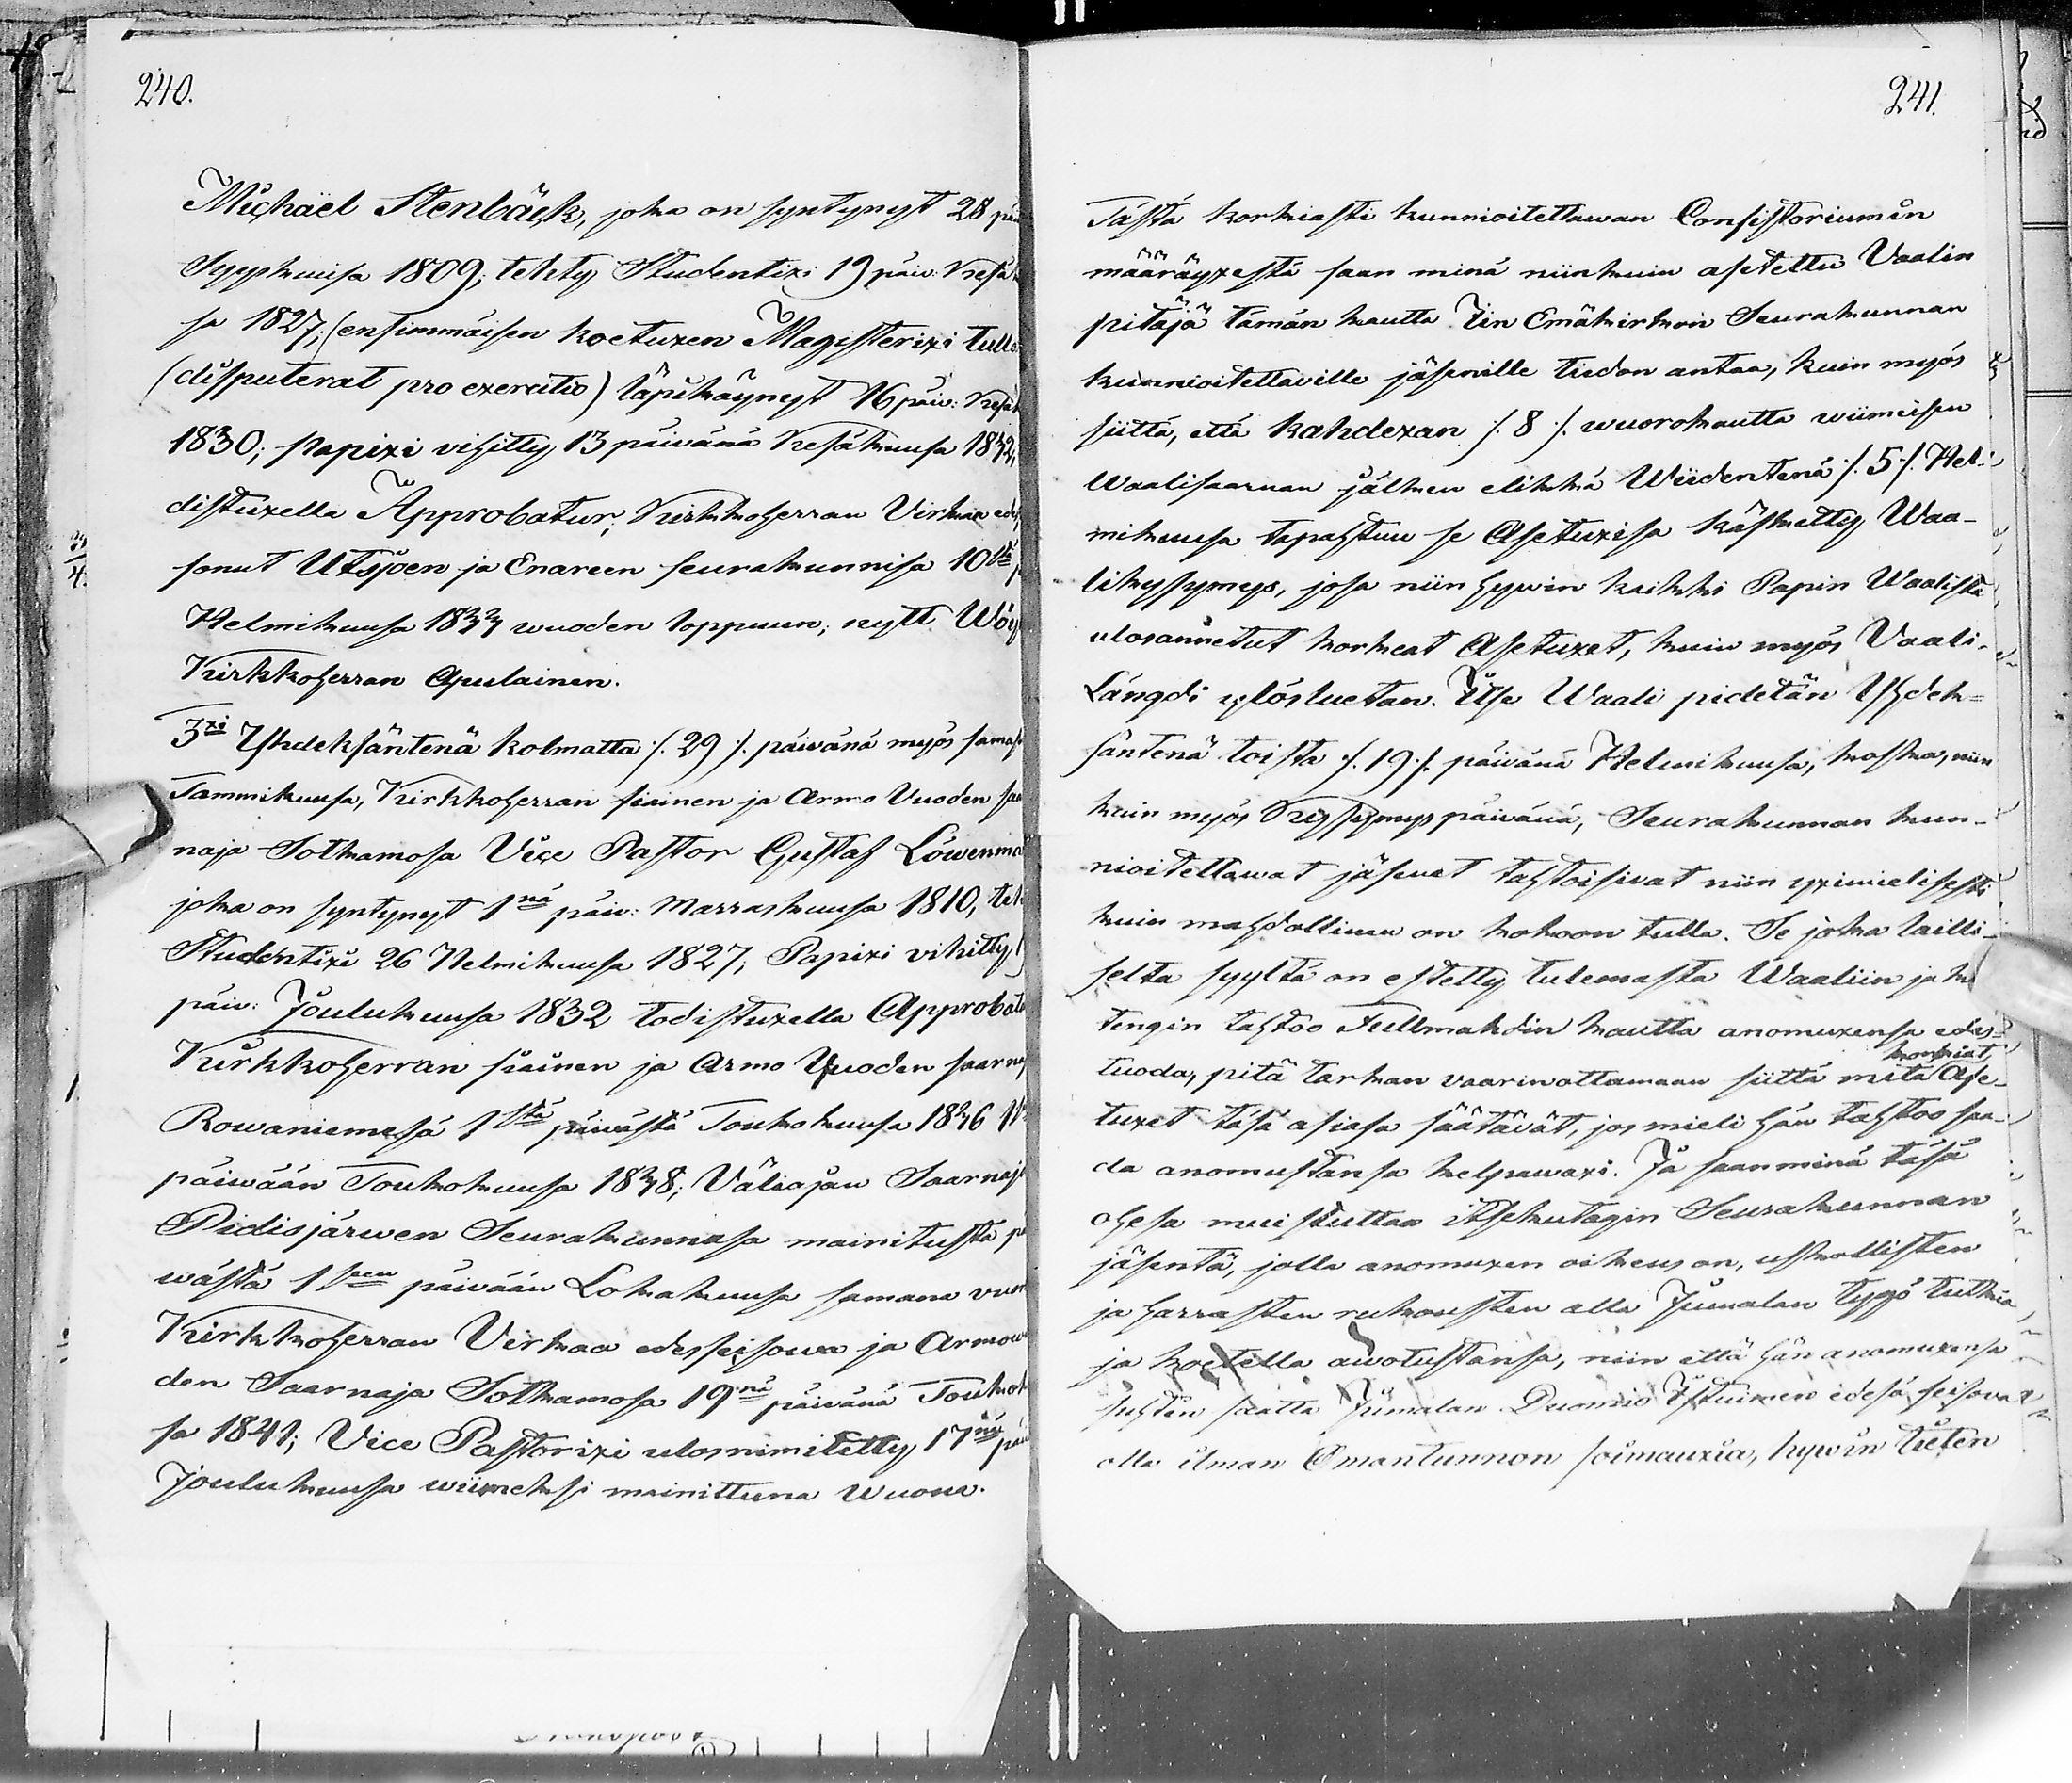 240.
Michaël Stenbäck, joka on syntynyt 28 päi
Syyskuusa 1809; tehty Studentixi 19 päiv: Kesäk
sa 1827; (ensimmäisen koetuxen Magisterixi tulla
(disputerat pro exercitio) läpikäynyt 16 päiv: Kesäk
1830; papixi vihitty 13 päivänä Kesäkuusa 1832,
distuxella Approbatur; Kirkkoherran Virkaa edes
sonut Utsjoen ja Enareen seurakunnisa 10stä p
Helmikuusa 1833 wuoden loppuun; nytt Wöy
Kirkkoherran Apulainen.
3xi Yhdeksäntenä kolmatta /. 29 /. päivänä myös samas
Tammikuusa, Kirkkoherran siainen ja Armo Vuoden saa
naja Sotkamosa Vice Pastor Gustaf Löwenma
joka on syntynyt 1nä päiv: Marraskuusa 1810, teh
Studentixi 26 Helmikuusa 1827; Papixi vihitty 1
päiv: Joulukuusa 1832 todistuxella Approbatu
Kirkkoherran siainen ja Armo Vuoden saarnaj
Rowaniemesä 1stä päivästä Toukokuusa 1836 1
päiwään Toukokuusa 1838; Väliajan Saarnaja
Pidisjärwen Seurakunnasa mainitusta p
wästä 1seen päivään Lokakuusa samana vuon
Kirkkoherran Virkaa edesseisowa ja Armow
den Saarnaja Sotkamosa 19nä päivänä Toukok
sa 1841; Vice Pastorixi ulosnimitetty 17nä päi
Joulukuusa wiimeksi mainittuna Wuona.
241.
Tästä korkiasti kunnioitettawan Consistoriumin
määräyxestä saan minä niinkuin asetettu Vaalin
pitäjä tämän kautta Iin Emäkirkon Seurakunnan
kunnioitettaville jäsenille tiedon antaa, kuin myös
siitä, että kahdexan /. 8 /. wuorokautta wiimeisen
Waalisaarnan jälken elikkä Wiidentenä /. 5 /. Hel-
mikuusa tapahtuu se Asetuxisa käsketty Waa-
likysymys, josa niin hywin kaikki Papin Waalista
ulosannetut korkeat Asetuxet, kuin myös Vaali-
Längdi ylösluetan. Itse Waali pidetän Yhdek-
säntenä toista /. 19 /. päivänä Helmikuusa, koska, niin
kuin myös Kysymys päivänä, Seurakunnan kun-
nioitettawat jäsenet tahtoisivat niin yximielisesti
kuin mahdollinen on kokoon tulla. Se joka lailli-
selta syyltä on estetty tulemasta Waaliin ja ku
tengin tahtoo Fullmahdin kautta anomuxensa edes-
tuoda, pitä tarkan vaarinottamaan siitä mitä korkiat Ase-
tuxet täsä asiasa säätävät, jos mieli hän tahtoo saa-
da anomustansa kelpawaxi. Ja saan minä täsä
ohesa muistuttaa itsekutagin Seurakunnan
jäsentä, jolla anomuxen oikeus on, uskollisten
ja harrasten rukousten alla Jumalan tygö tutkia
ja koetella awotustansa, niin että hän anomuxensa
suhten saatta Jumalan Duomio Istuimen edesä seisova
olla ilman Omantunnon soimauxia, hywin tieten